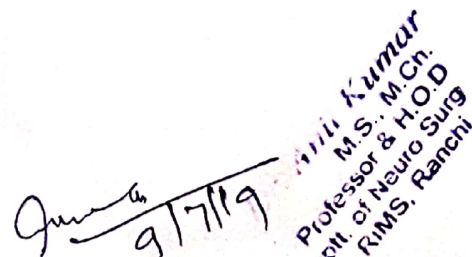 9/7/19
Kumar
M.S., M.Ch.
Professor & H.O.D
ptt. of Neuro Surg
RIMS, Ranchi